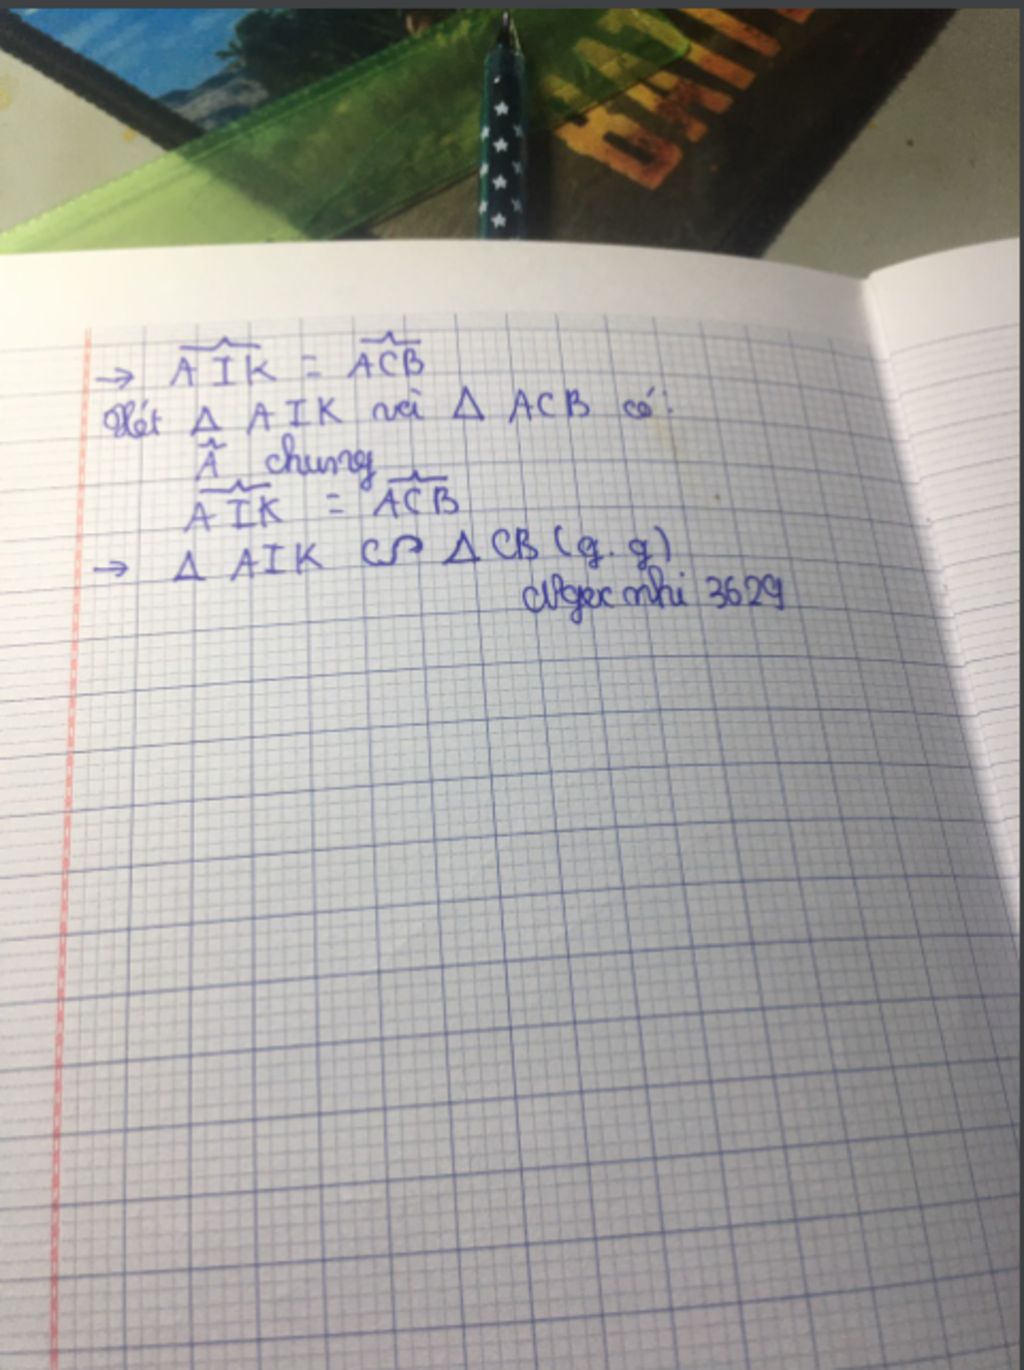 → \widehat{AIK} = \widehat{ACB}
Xét Δ AIK và Δ ACB có:
Â chung
\widehat{AIK} = \widehat{ACB}
→ Δ AIK ∽ Δ CB (g.g)
Ngọc nhi 3629